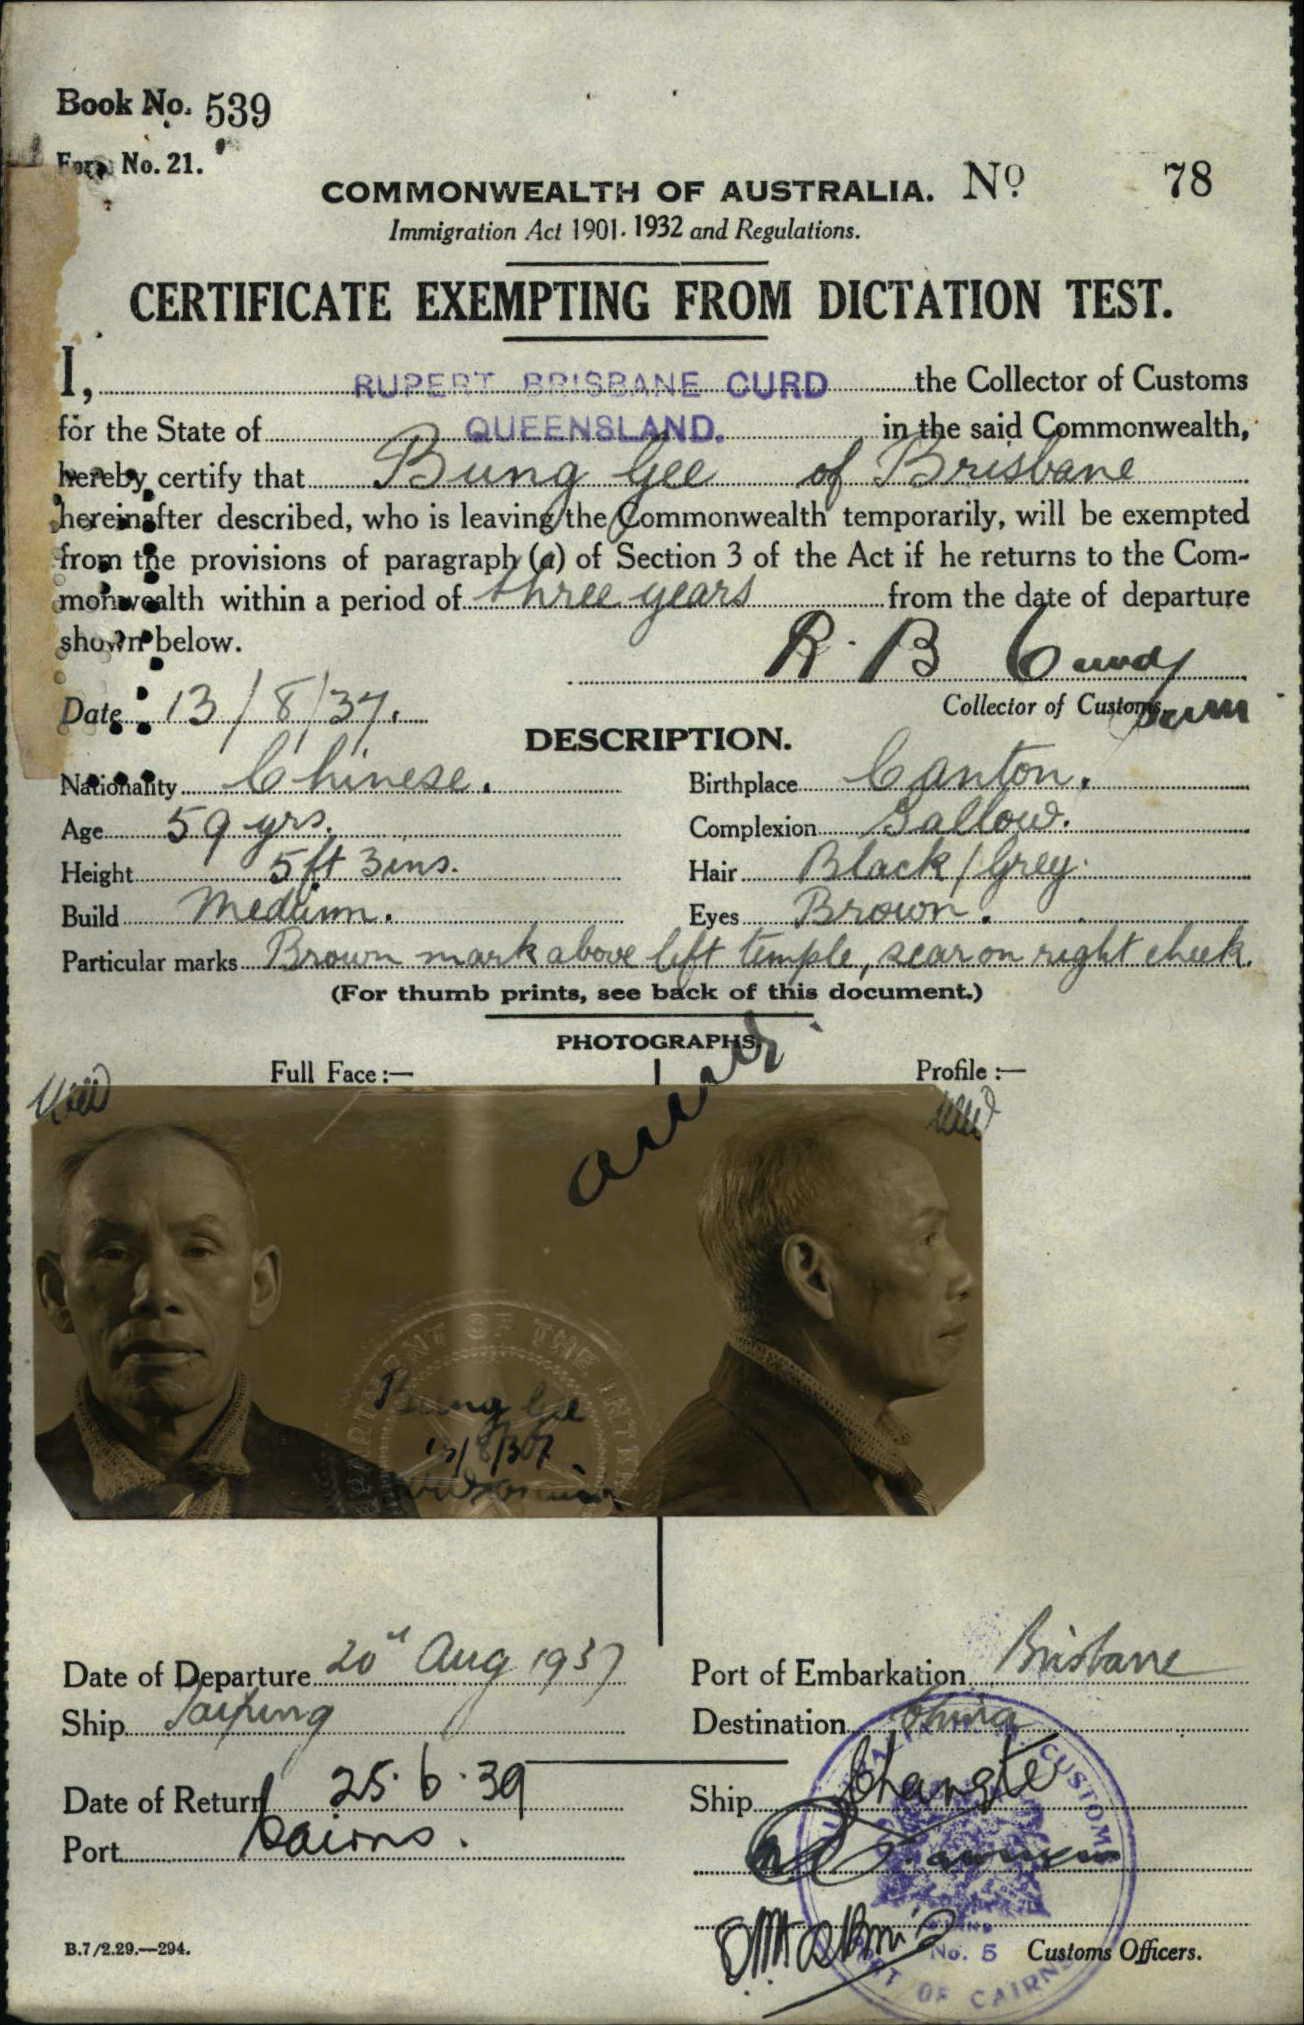 Book No. 539
Form No. 21.
COMMONWEALTH OF AUSTRALIA. No 78
Immigration Act 1901-1932 and Regulations.
CERTIFICATE EXEMPTING FROM DICTATION TEST.
I, RUPERT BRISBANE CURD the Collector of Customs
for the State of QUEENSLAND. in the said Commonwealth,
hereby certify that Bung Gee of Brisbane
hereinafter described, who is leaving the Commonwealth temporarily, will be exempted
from the provisions of paragraph (a) of Section 3 of the Act if he returns to the Com-
monwealth within a period of three years from the date of departure
shown below.
R. B. Curd
Date 13/8/37. Collector of Customs
DESCRIPTION.
Nationality Chinese. Birthplace Canton.
Age 59 yrs. Complexion Sallow.
Height 5ft 3ins. Hair Black/Grey.
Build Medium. Eyes Brown.
Particular marks Brown mark above left temple, scar on right cheek.
(For thumb prints, see back of this document.)
PHOTOGRAPHS.
Full Face :— Profile :—
DEPARTMENT OF THE INTERIOR
Bung Gee
13/8/37
Date of Departure 20th Aug 1937 Port of Embarkation Brisbane
Ship Taiping Destination China
Date of Return 25.6.39 Ship Changte
Port Cairns.
CUSTOMS
B.7/2.29.—294. No. 5 Customs Officers.
PORT OF CAIRNS